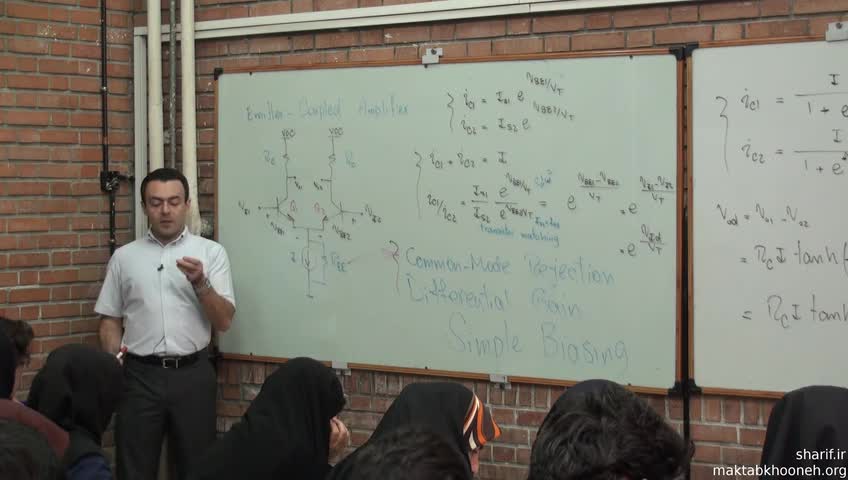 Emitter-Coupled Amplifier
VCC VCC
RC RC
Q1 Q2
VBE1 VBE2
I REE
iC1 = IS1 e^VBE1/VT
iC2 = IS2 e^VBE2/VT
iC1 + iC2 = I
iC1/iC2 = IS1/IS2 e^VBE1/VT / e^VBE2/VT = e^(VBE1-VBE2)/VT = e
transistor matching
= e^Vid/VT
Common-Mode Rejection
Differential Gain
Simple Biasing
iC1 = I / 1 + e
iC2 = I / 1 + e
Vod = Vo1 - Vo2
= RC I tanh(
= RC I tanh
sharif.ir
maktabkhooneh.org